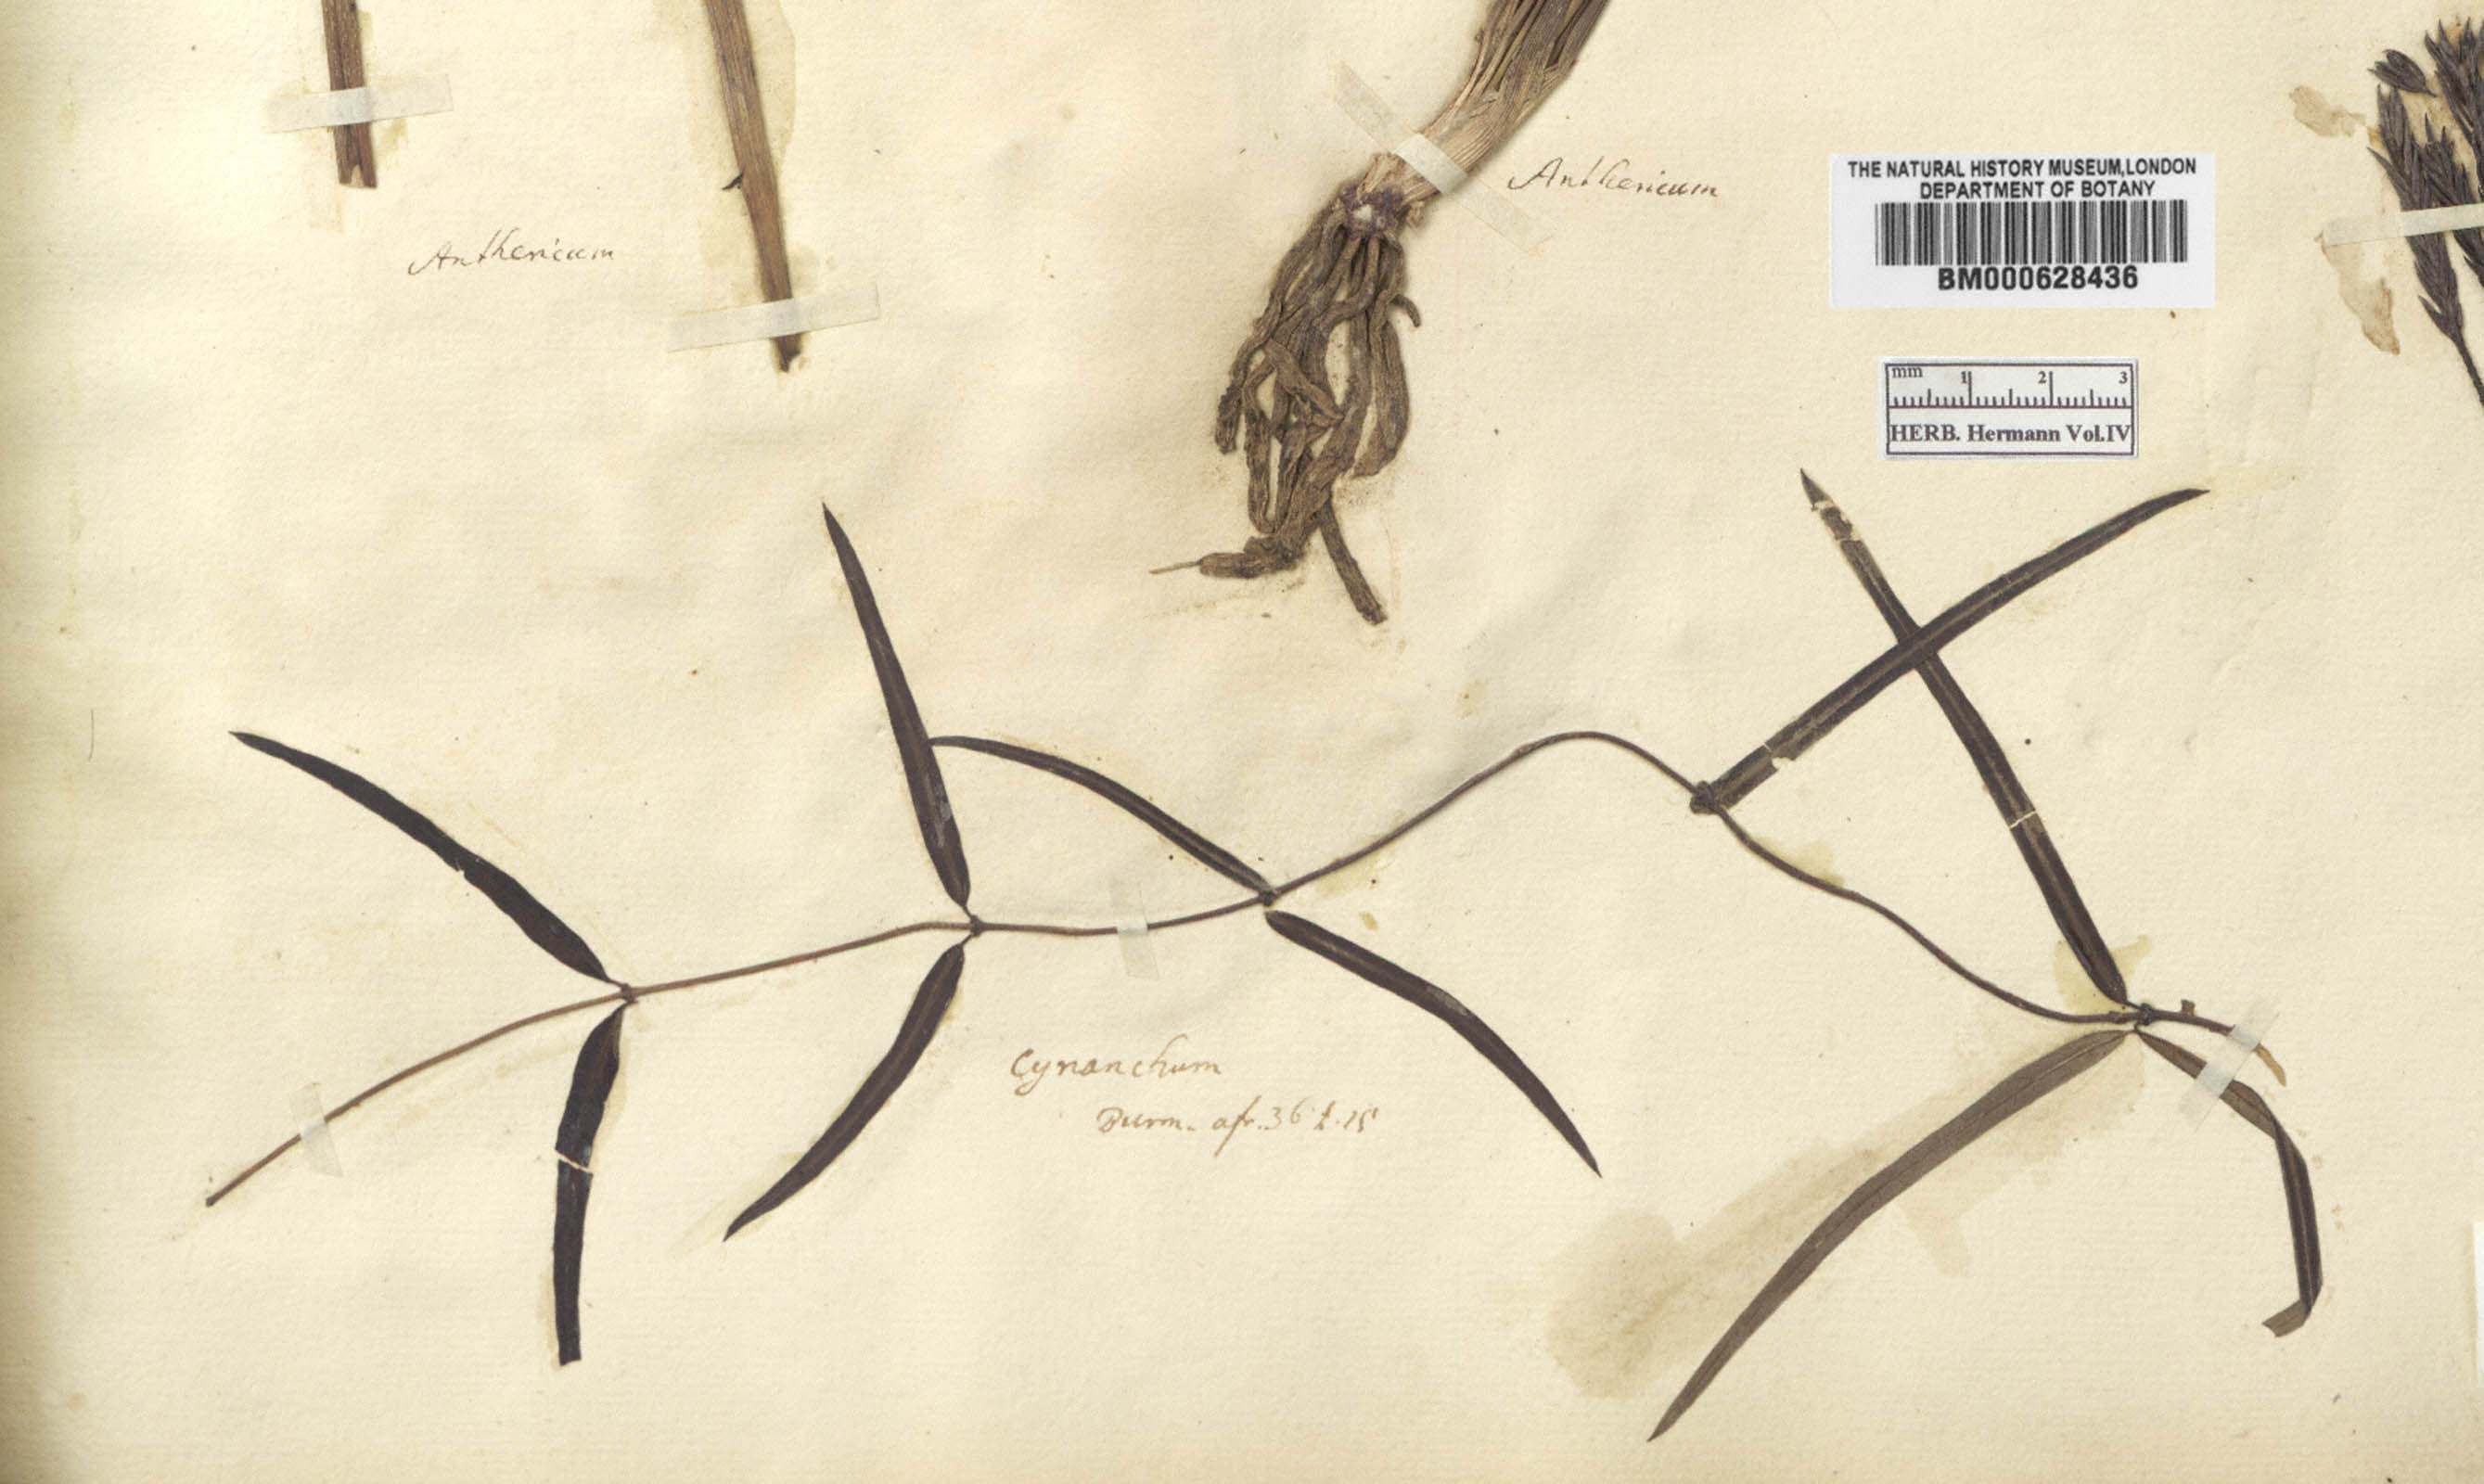 Anthericum
Anthericum
THE NATURAL HISTORY MUSEUM,LONDON
DEPARTMENT OF BOTANY
BM000628436
mm 1 2 3
HERB. Hermann Vol.IV
Cynanchum
Burm. afr. 36 t. 15